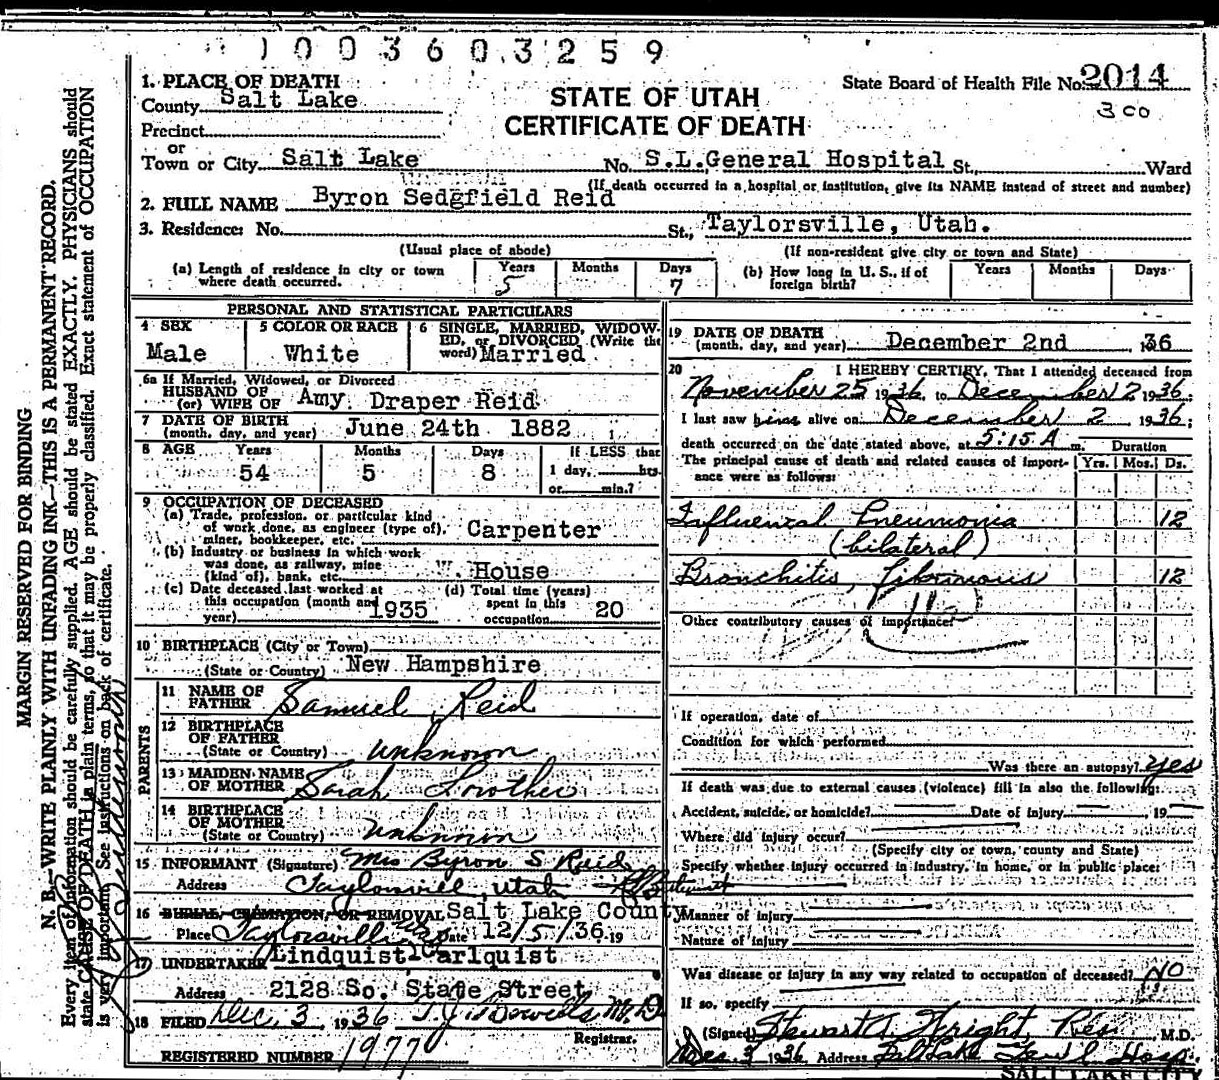 1003603259
1. PLACE OF DEATH
County Salt Lake
State Board of Health File No. 2014
300
STATE OF UTAH
CERTIFICATE OF DEATH
Precinct
or
Town or City Salt Lake No. S.L. General Hospital St., Ward
(If death occurred in a hospital or institution, give its NAME instead of street and number)
2. FULL NAME Byron Sedgfield Reid
3. Residence: No. St., Taylorsville, Utah.
(Usual place of abode) (If non-resident give city or town and State)
(a) Length of residence in city or town where death occurred. Years 5 Months Days 7
(b) How long in U. S., if of foreign birth? Years Months Days
PERSONAL AND STATISTICAL PARTICULARS
4 SEX Male
5 COLOR OR RACE White
6 SINGLE, MARRIED, WIDOWED, or DIVORCED (Write the word) Married
6a If Married, Widowed, or Divorced
HUSBAND OF
(or) WIFE OF Amy Draper Reid
7 DATE OF BIRTH
(month, day, and year) June 24th 1882
8 AGE Years 54 Months 5 Days 8 If LESS than 1 day, hrs. or min.?
9 OCCUPATION OF DECEASED
(a) Trade, profession, or particular kind of work done, as engineer (type of), miner, bookkeeper, etc. Carpenter
(b) Industry or business in which work was done, as railway, mine (kind of), bank, etc. House
(c) Date deceased last worked at this occupation (month and year) 1935
(d) Total time (years) spent in this occupation 20
10 BIRTHPLACE (City or Town)
(State or Country) New Hampshire
PARENTS
11 NAME OF FATHER Samuel Reid
12 BIRTHPLACE OF FATHER
(State or Country) unknown
13 MAIDEN NAME OF MOTHER Sarah Lowther
14 BIRTHPLACE OF MOTHER
(State or Country) unknown
15 INFORMANT (Signature) Mrs Byron S Reid
Address Taylorsvill, Utah
16 BURIAL, CREMATION, OR REMOVAL Salt Lake County
Place Taylorsville Date 12/5/36 19
17 UNDERTAKER Lindquist Carlquist
Address 2128 So. State Street
18 FILED Dec. 3, 1936 M.D.
Registrar.
REGISTERED NUMBER 1977
19 DATE OF DEATH
(month, day, and year) December 2nd 36
20 I HEREBY CERTIFY, That I attended deceased from
November 25 1936, to December 2 1936;
I last saw him alive on December 2, 1936;
death occurred on the date stated above, at 5:15 A m. Duration
The principal cause of death and related causes of importance were as follows: Yrs. Mos. Ds.
Influenzal Pneumonia 12
(bilateral)
Bronchitis, fibrinous 12
Other contributory causes of importance:
If operation, date of
Condition for which performed
Was there an autopsy? yes
If death was due to external causes (violence) fill in also the following:
Accident, suicide, or homicide? Date of injury 19
Where did injury occur?
(Specify city or town, county and State)
Specify whether injury occurred in industry, in home, or in public place:
Manner of injury
Nature of injury
Was disease or injury in any way related to occupation of deceased? No
If so, specify
(Signed) Stewart A. Wright, Res. M.D.
Dec. 3 1936 Address Salt Lake Gen'l Hosp.
SALT LAKE CITY
MARGIN RESERVED FOR BINDING
N. B.—WRITE PLAINLY WITH UNFADING INK—THIS IS A PERMANENT RECORD.
Every item of information should be carefully supplied. AGE should be stated EXACTLY. PHYSICIANS should
state CAUSE OF DEATH in plain terms, so that it may be properly classified. Exact statement of OCCUPATION
is very important. See instructions on back of certificate.